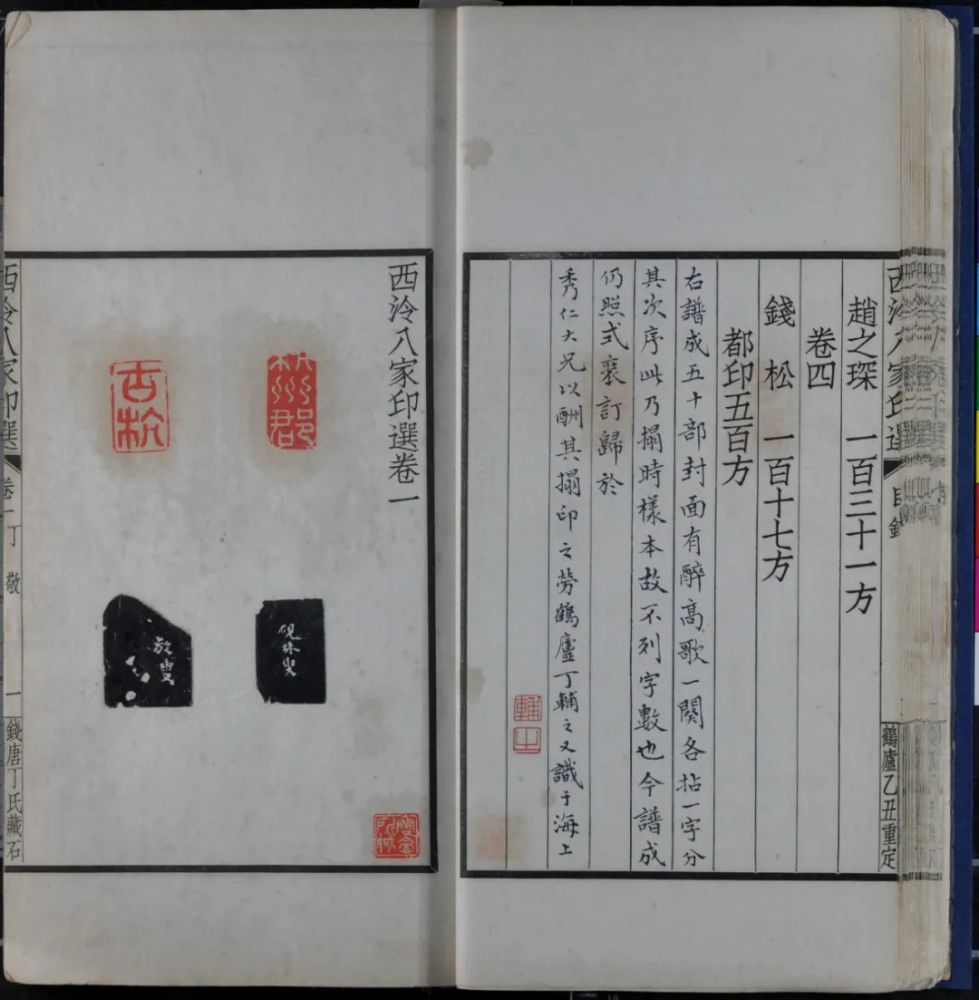 趙之琛　一百三十一方
卷四
錢　松　一百十七方
都印五百方
右譜成五十部封面有醉高歌一闋各拈一字分
其次序此乃搨時樣本故不列字數也今譜成
仍照式裒訂歸於
秀仁大兄以酬其搨印之勞鶴廬丁輔之又識于海上
輔之
西泠八家印選
目錄
鶴廬乙丑重定
西泠八家印選卷一
竹州郡
硯林叟
古杭
敬叟
西泠八家印選
卷一丁　敬
一
錢唐丁氏藏石